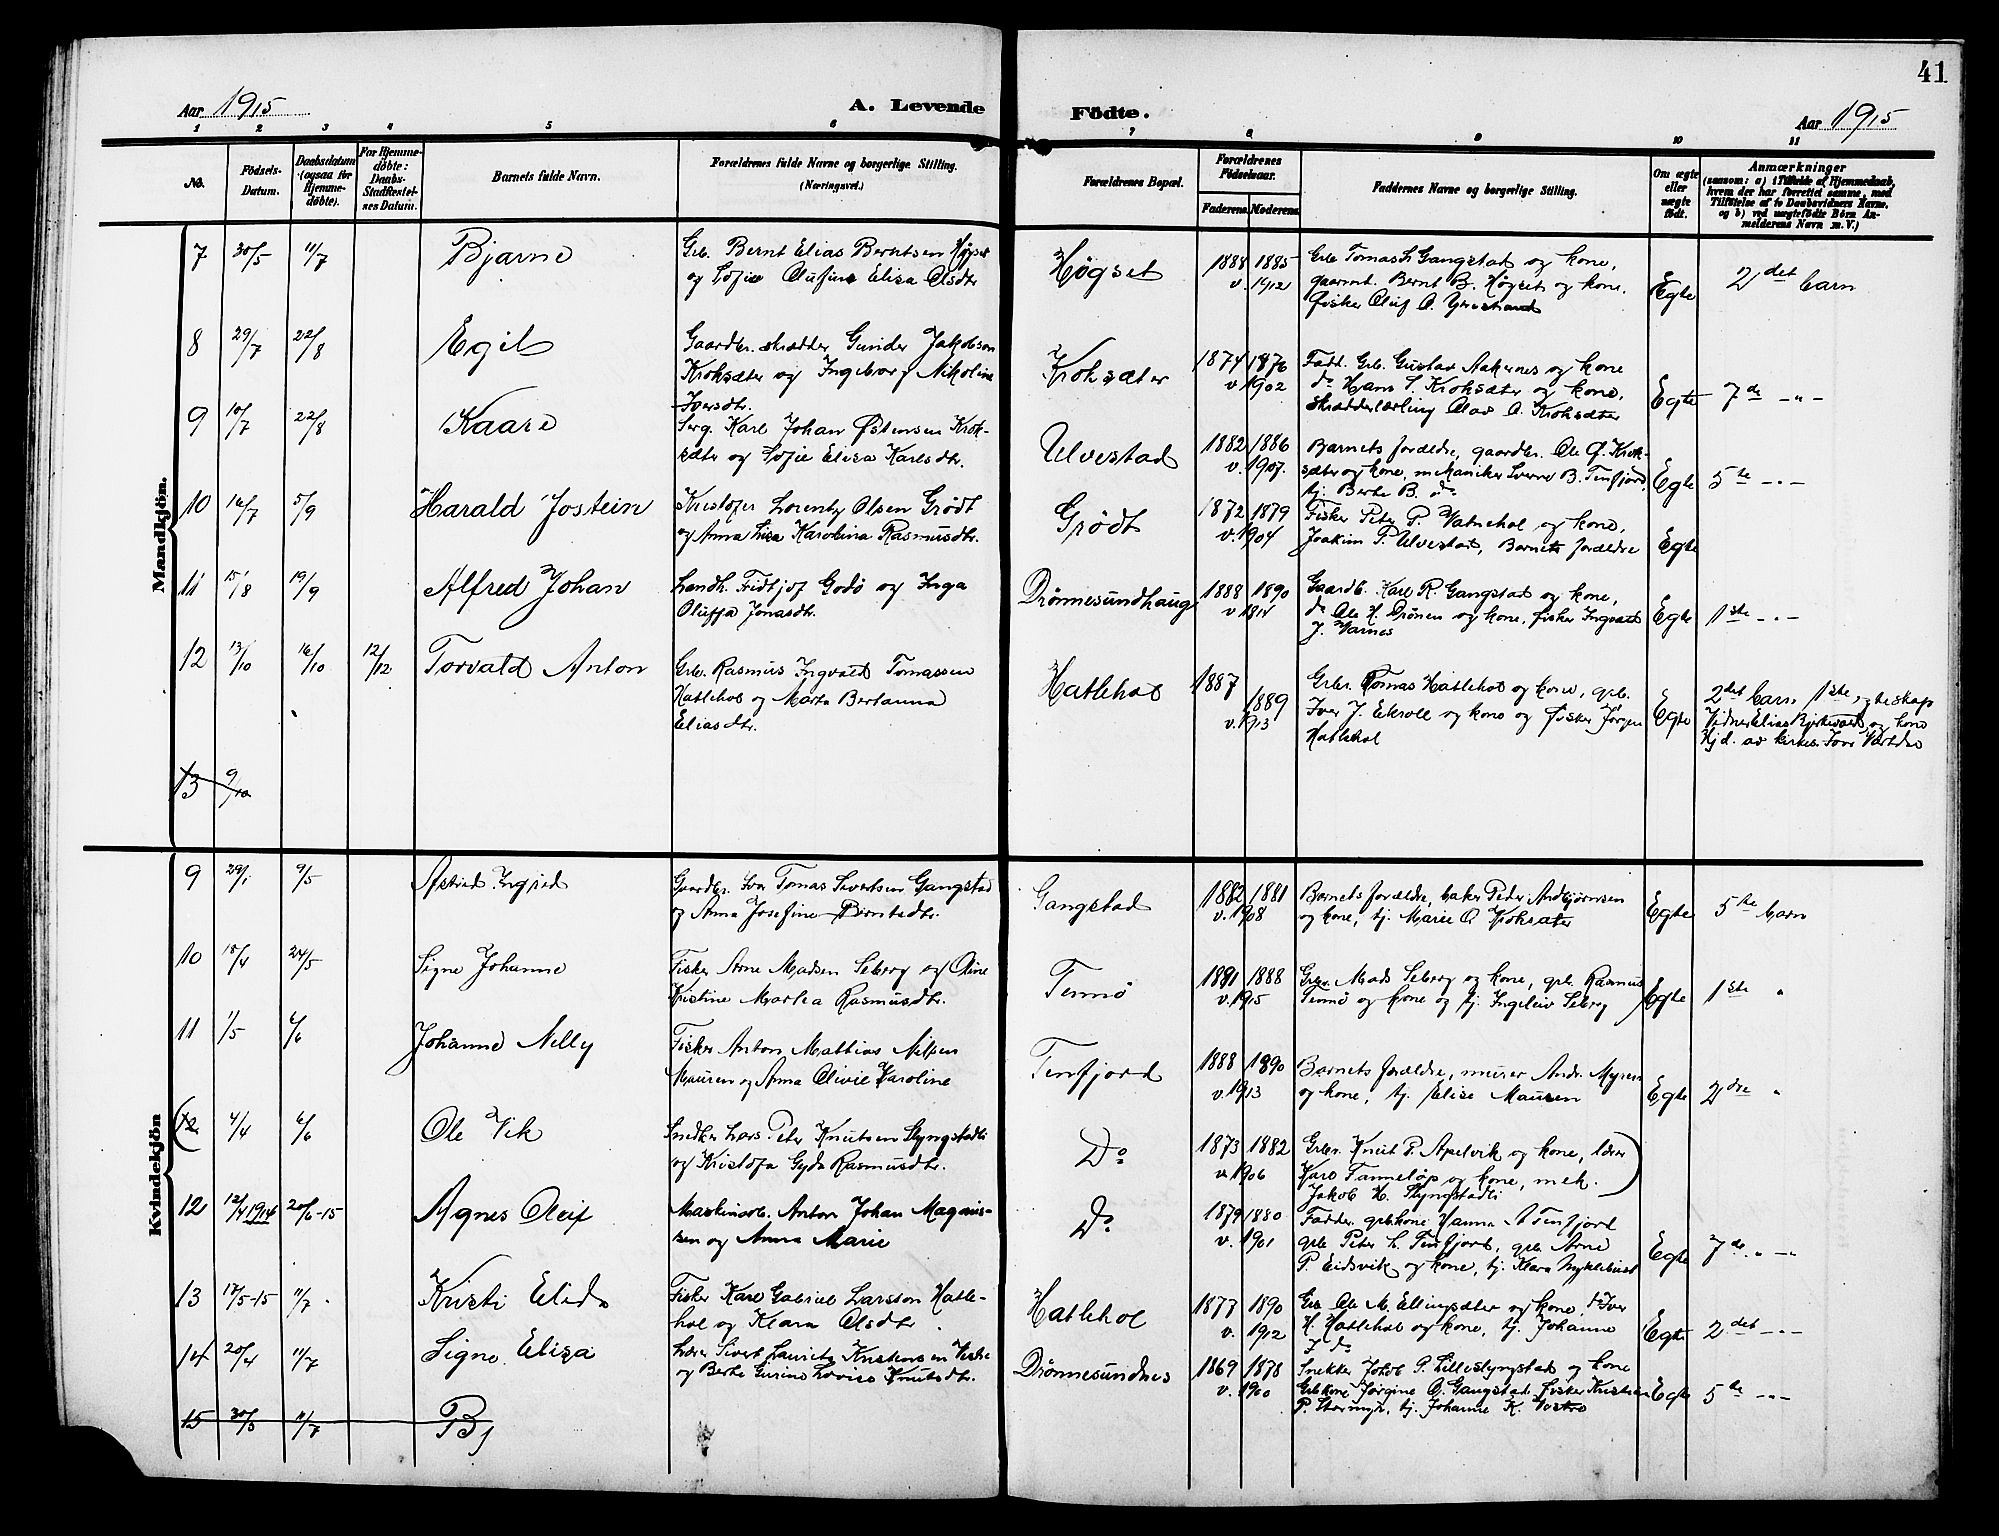 41
Aar 1915 A. Levende Födte. Aar 1915
1 2 3 4 5 6 7 8 9 10 11
No.
Födsels-
Datum.
Daabsdatum
(ogsaa for
Hjemme-
döbte).
For Hjemme-
döbte:
Daabs-
Stadfæstel-
ses Datum.
Barnets fulde Navn.
Forældrenes fulde Navne og borgerlige Stilling.
(Næringsvei.)
Forældrenes Bopæl.
Forældrenes
Födselsaar.
Faderens. Moderens.
Faddernes Navne og borgerlige Stilling.
Om ægte
eller
uægte
födt.
Anmærkninger
(saasom: a) i Tilfælde af Hjemmedaab,
hvem der har forrettet samme, med
Tilföielse af to Daabsvidners Navne,
og b) ved uægtefödte Börn An-
melderens Navn m. V.)
Mandkjön.
7 30/5 11/7 Bjarne
Grb. Bernt Elias Berntsen Høgset
og Sofie Olufine Elisa Olsdtr
Høgset
1888 1885
v. 1912
Grb. Tomas L. Gangstad og kone,
gaarmt. Bernt B. Høgset og kone,
fisker Oluf O. Ytrestrand
Egte
2det barn
8 29/7 22/8 Egil
Gaardbr. skrædder Gunder Jakobsen
Kroksæter og Ingeborg Nikoline
Iversdtr.
Kroksæter
1874 1876
v. 1902
Fadt. Grb. Gustav Aakernes og kone
do Hans S. Kroksæter og kone,
skrædderlærling Olav O. Kroksæter
Egte
7de -"-
9 10/7 22/8 Kaare
Serg. Karl Johan Østensen Krok-
sæter og Sofie Elisa Karlsdtr.
Ulvestad
1882 1886
v. 1907.
Barnets forældre, gaardbr. Ole G. Krok-
sæter og kone, mekaniker Sverre B. Tenfjord,
tj. Berte B. do
Egte
5te -"-
10 16/7 5/9 Harald Jostein
Kristofer Lorentz Olsen Grødt
og Anna Lisa Karolina Rasmusdtr.
Grødt
1872 1879
v. 1904
Fisker Peter P. Vatnehol og kone,
Joakim P. Ulvestad, Barnets forældre
Egte
11 15/8 19/9 Alfred Johan
Landh. Fridtjof Godø og Inga
Oluffa Jonasdtr.
Drønnesundhaug
1888 1890
v. 1914
Gaardb. Karl R. Gangstad og kone,
do Ole H. Drønen og kone, fisker Ingvald
J. Varnes
Egte
1ste -"-
12 13/10 16/10 12/12 Torvald Anton
Grb. Rasmus Ingvald Tomassen
Hatlehol og Marta Bertanna
Eliasdtr.
Hatlehol
1887
1889
v. 1913
Grbr. Tomas Hatlehol og kone, grb.
Iver J. Eikroll og kone og fisker Jørgen
Hatlehol
Egte
2det barn 1ste egteskap
Vidner Elias Bjerkevoll og kone
Hjd. av kirkes. Iver Vartdal
13 9/10
Kvindekjön
9 29/1 9/5 Astrid Ingrid
Gaardbr. Iver Tomas Sivertsen Gangstad
og Anna Josefine Berntsdtr.
Gangstad
1882 1881
v. 1908
Barnets forældre, baker Peter Andbjørnsen
og kone, tj. Marie O. Kroksæter
Egte
5te barn
10 18/4 24/5 Signe Johanne
Fisker Arne Madsen Leberg og Oline
Kristine Marta Rasmusdtr.
Tennø
1881 1888
v. 1915
Grbr. Mads Leberg og kone, grb. Rasmus
Tennø og kone og tj. Ingeleiv Leberg
Egte
1ste "
11 1/5 6/6 Johanne Nelly
Fisker Anton Mattias Nilsen
Mauren og Anna Olivie Karoline
Tenfjord
1888 1890
v. 1913
Barnets forældre, murer Andr. Myren
og kone, tj. Elise Mauren
Egte
2dre "
(12 4/4 6/6 Ole Vik
Snedker Lars Peter Knutsen Slyngstadli
og Kristofa Gyda Rasmusdtr.
Do
1873 1882
v. 1906
Grbr. Knut P. Apelvik og kone, lærer
Karl Tanneløp og kone, mek. )
Jakob K. Slyngstadli
12 12/4 1914 20/6-15 Agnes Oleif
Maskinarb. Anton Johan Magnus-
sen og Anna Marie
Do
1879 1880
v. 1901
Faddr. grbkone Hanna A Tenfjord
grb. Peter L. Tenfjord, grb. Arne
P. Eidsvik og kone, tj. Klara Nyklebust
Egte
7de " -"-
13 17/5-15 11/7 Kristi Elida
Fisker Karl Gabriel Larsson Hatle-
hol og Klara Olsdtr.
Hatlehol
1877 1890
v. 1912
Grb. Ole M. Ellingsæter og kone, do Iver
H. Hatlehol og kone, tj. Johanne
I. do
Egte
2det -"-
14 20/4 11/7 Signe Elisa
Lærer Sivert Laurits Kristensen Vestre
og Berte Gurine Lovise Knutsdtr.
Drønnesundnes
1869 1878
v. 1900
Snekker Jakob P. Lilleslyngstad og kone
Grbkone Jørgine O. Gangstad, fisker Kristian
P. Steringr, tj. Johanne K. Vestre
Egte
5te -"-
15 30/5 11/7 Bj